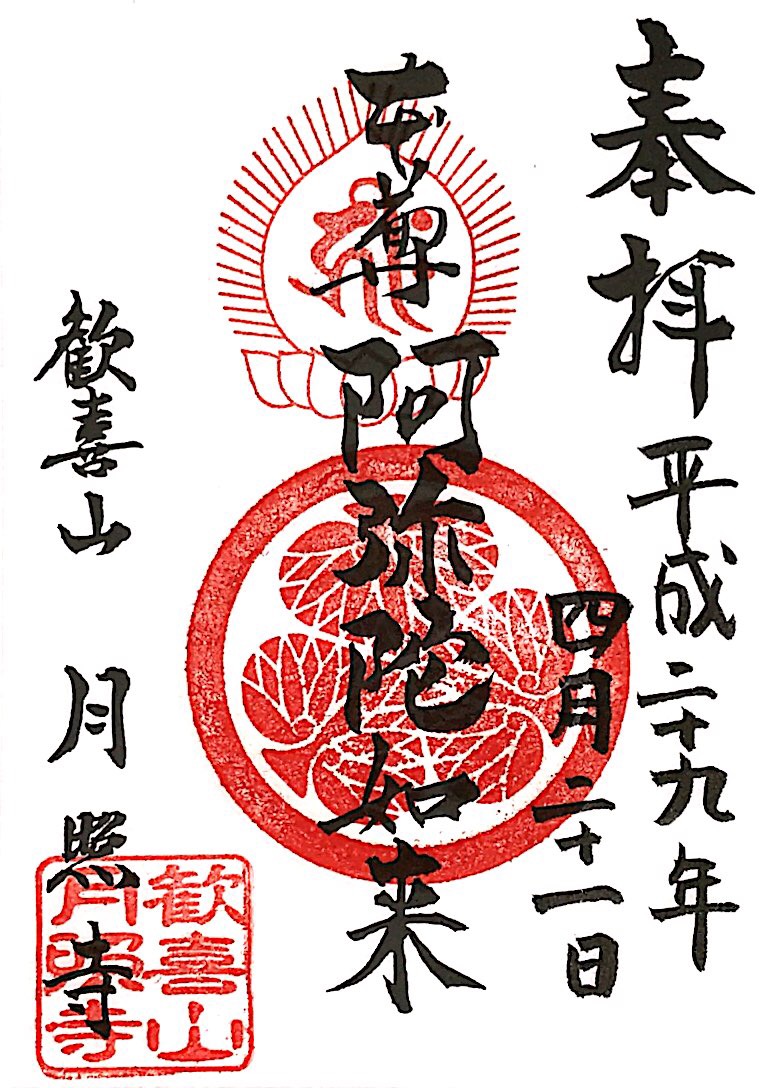 奉拝
平成二十九年
四月二十一日
本尊 阿弥陀如来
歓喜山 月照寺
歓喜山
月照寺